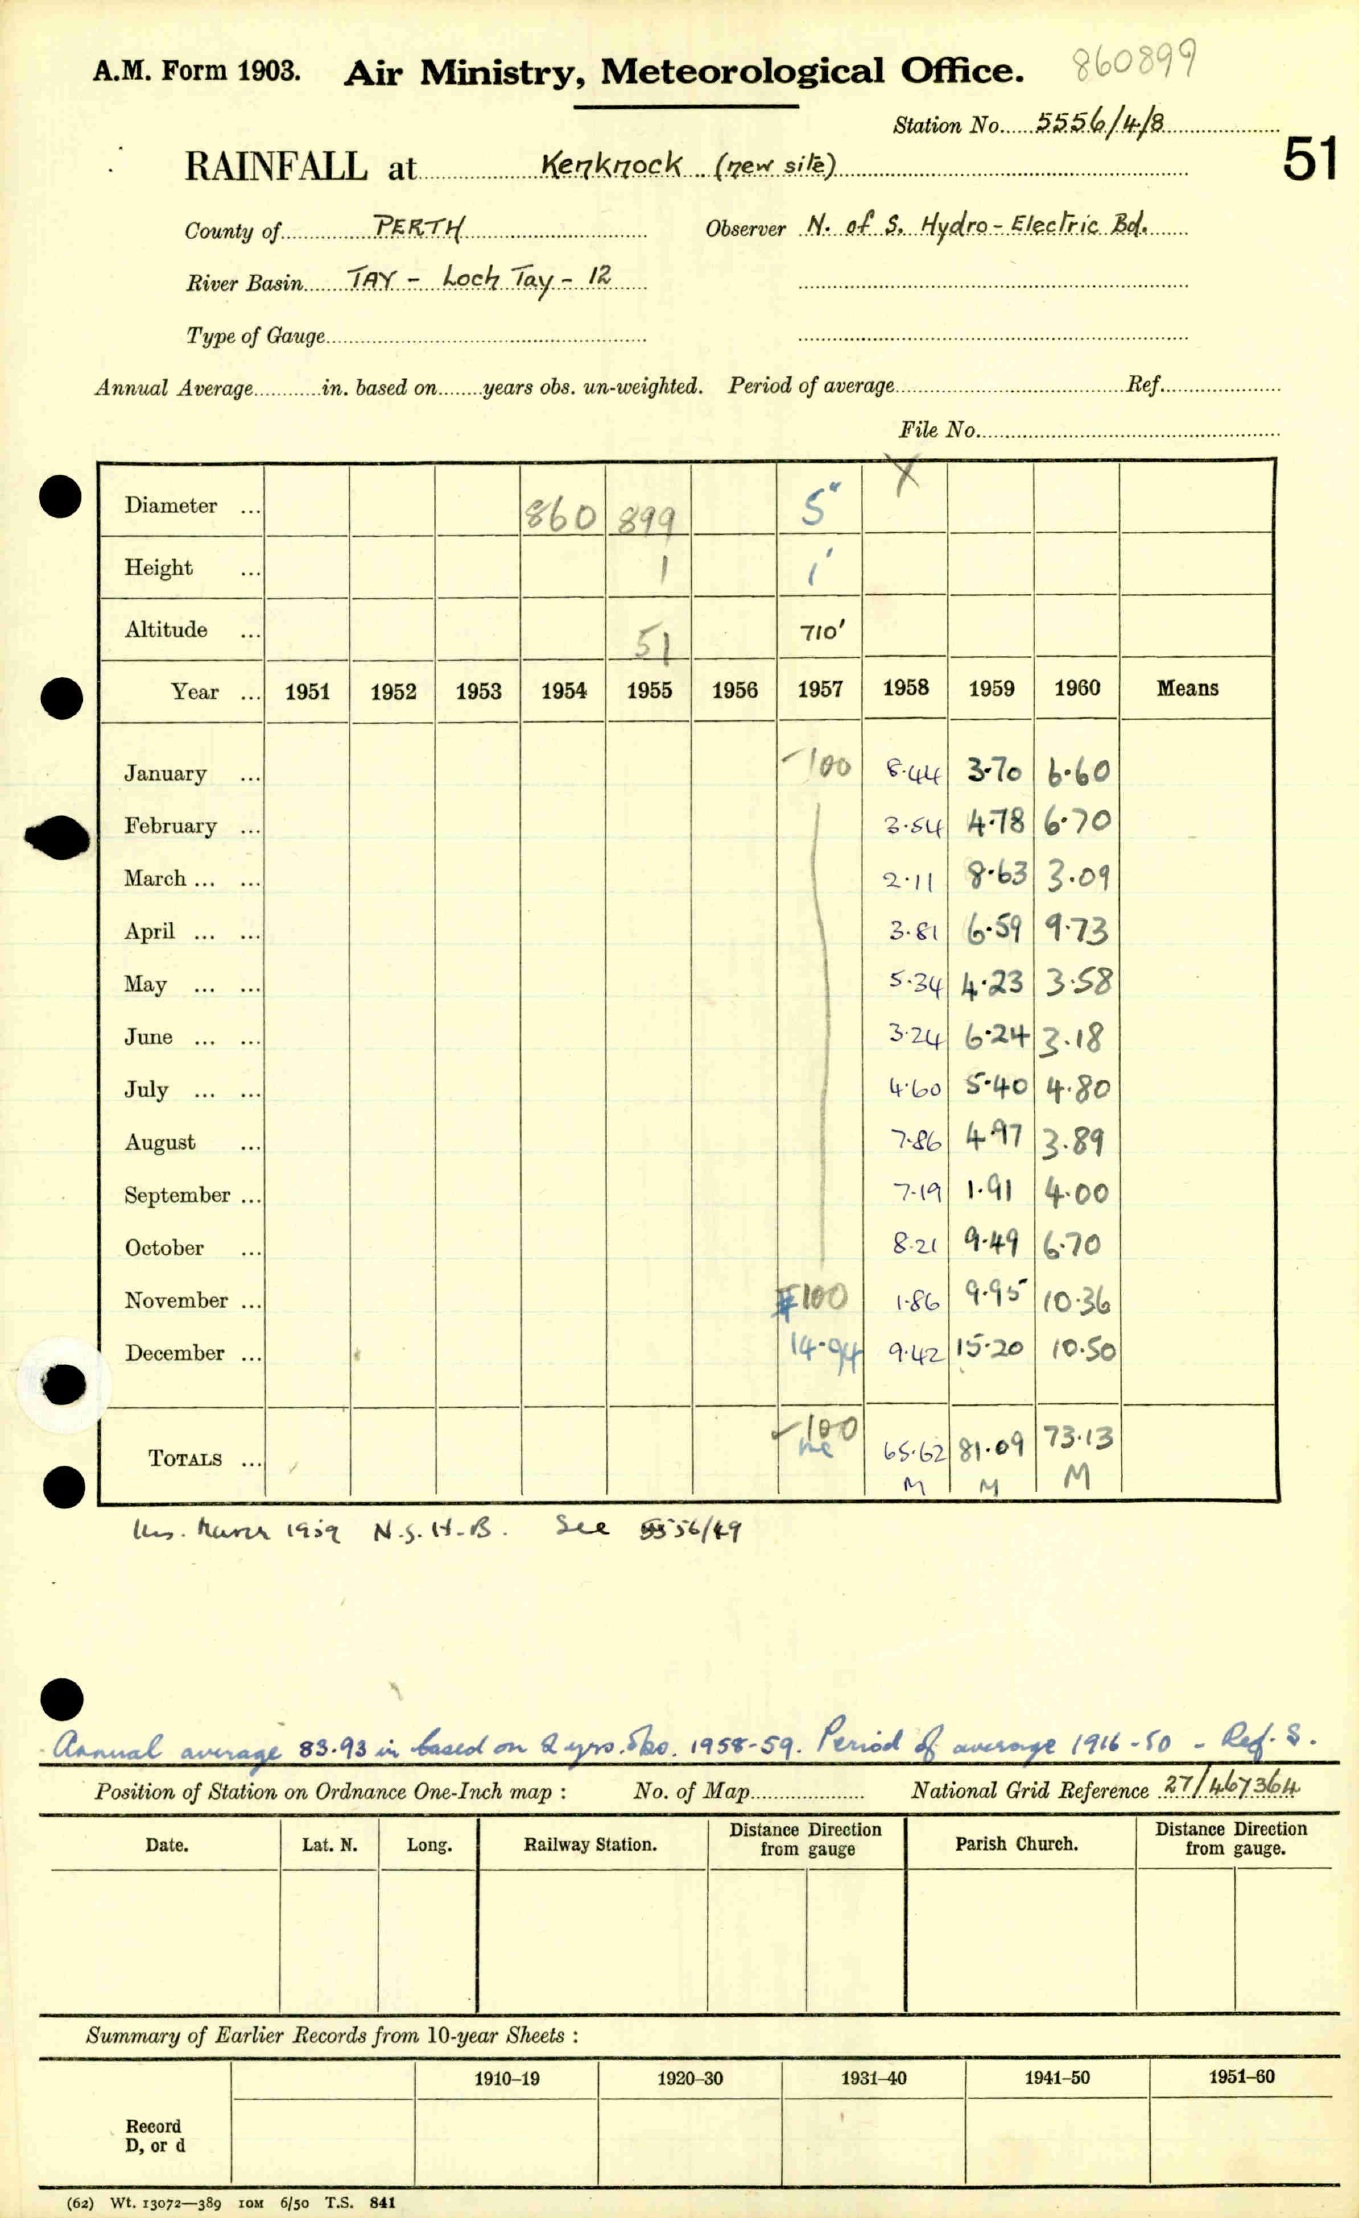 A.M. Form 1903. Air Ministry, Meteorological Office. 860899
Station No. 5556/4/8
51
RAINFALL at Kenknock (new site)
County of PERTH Observer N. of S. Hydro-Electric Bd.
River Basin TAY - Loch Tay - 12
Type of Gauge
Annual Average in. based on years obs. un-weighted. Period of average Ref.
File No.
X
Diameter ... 860 899 5"
Height ... 1 1'
Altitude ... 51 710'
Year ... 1951 1952 1953 1954 1955 1956 1957 1958 1959 1960 Means
January ... -100 8.44 3.70 6.60
February ... 3.54 4.78 6.70
March ... ... 2.11 8.63 3.09
April ... ... 3.81 6.59 9.73
May ... ... 5.34 4.23 3.58
June ... ... 3.24 6.24 3.18
July ... ... 4.60 5.40 4.80
August ... 7.86 4.97 3.89
September ... 7.19 1.91 4.00
October ... 8.21 9.49 6.70
November ... 100 1.86 9.95 10.36
December ... 14.94 9.42 15.20 10.50
TOTALS ... -100 65.62 81.09 73.13
M M M
1959 N.S.H.B. See 5556/49
Annual average 83.93 in based on 2 yrs. obs. 1958-59. Period of average 1916-50 - Ref. S.
Position of Station on Ordnance One-Inch map : No. of Map National Grid Reference 27/467364
Date. Lat. N. Long. Railway Station. Distance Direction from gauge Parish Church. Distance Direction from gauge.
Summary of Earlier Records from 10-year Sheets :
1910–19 1920–30 1931–40 1941–50 1951–60
Record
D, or d
(62) Wt. 13072—389 10M 6/50 T.S. 841